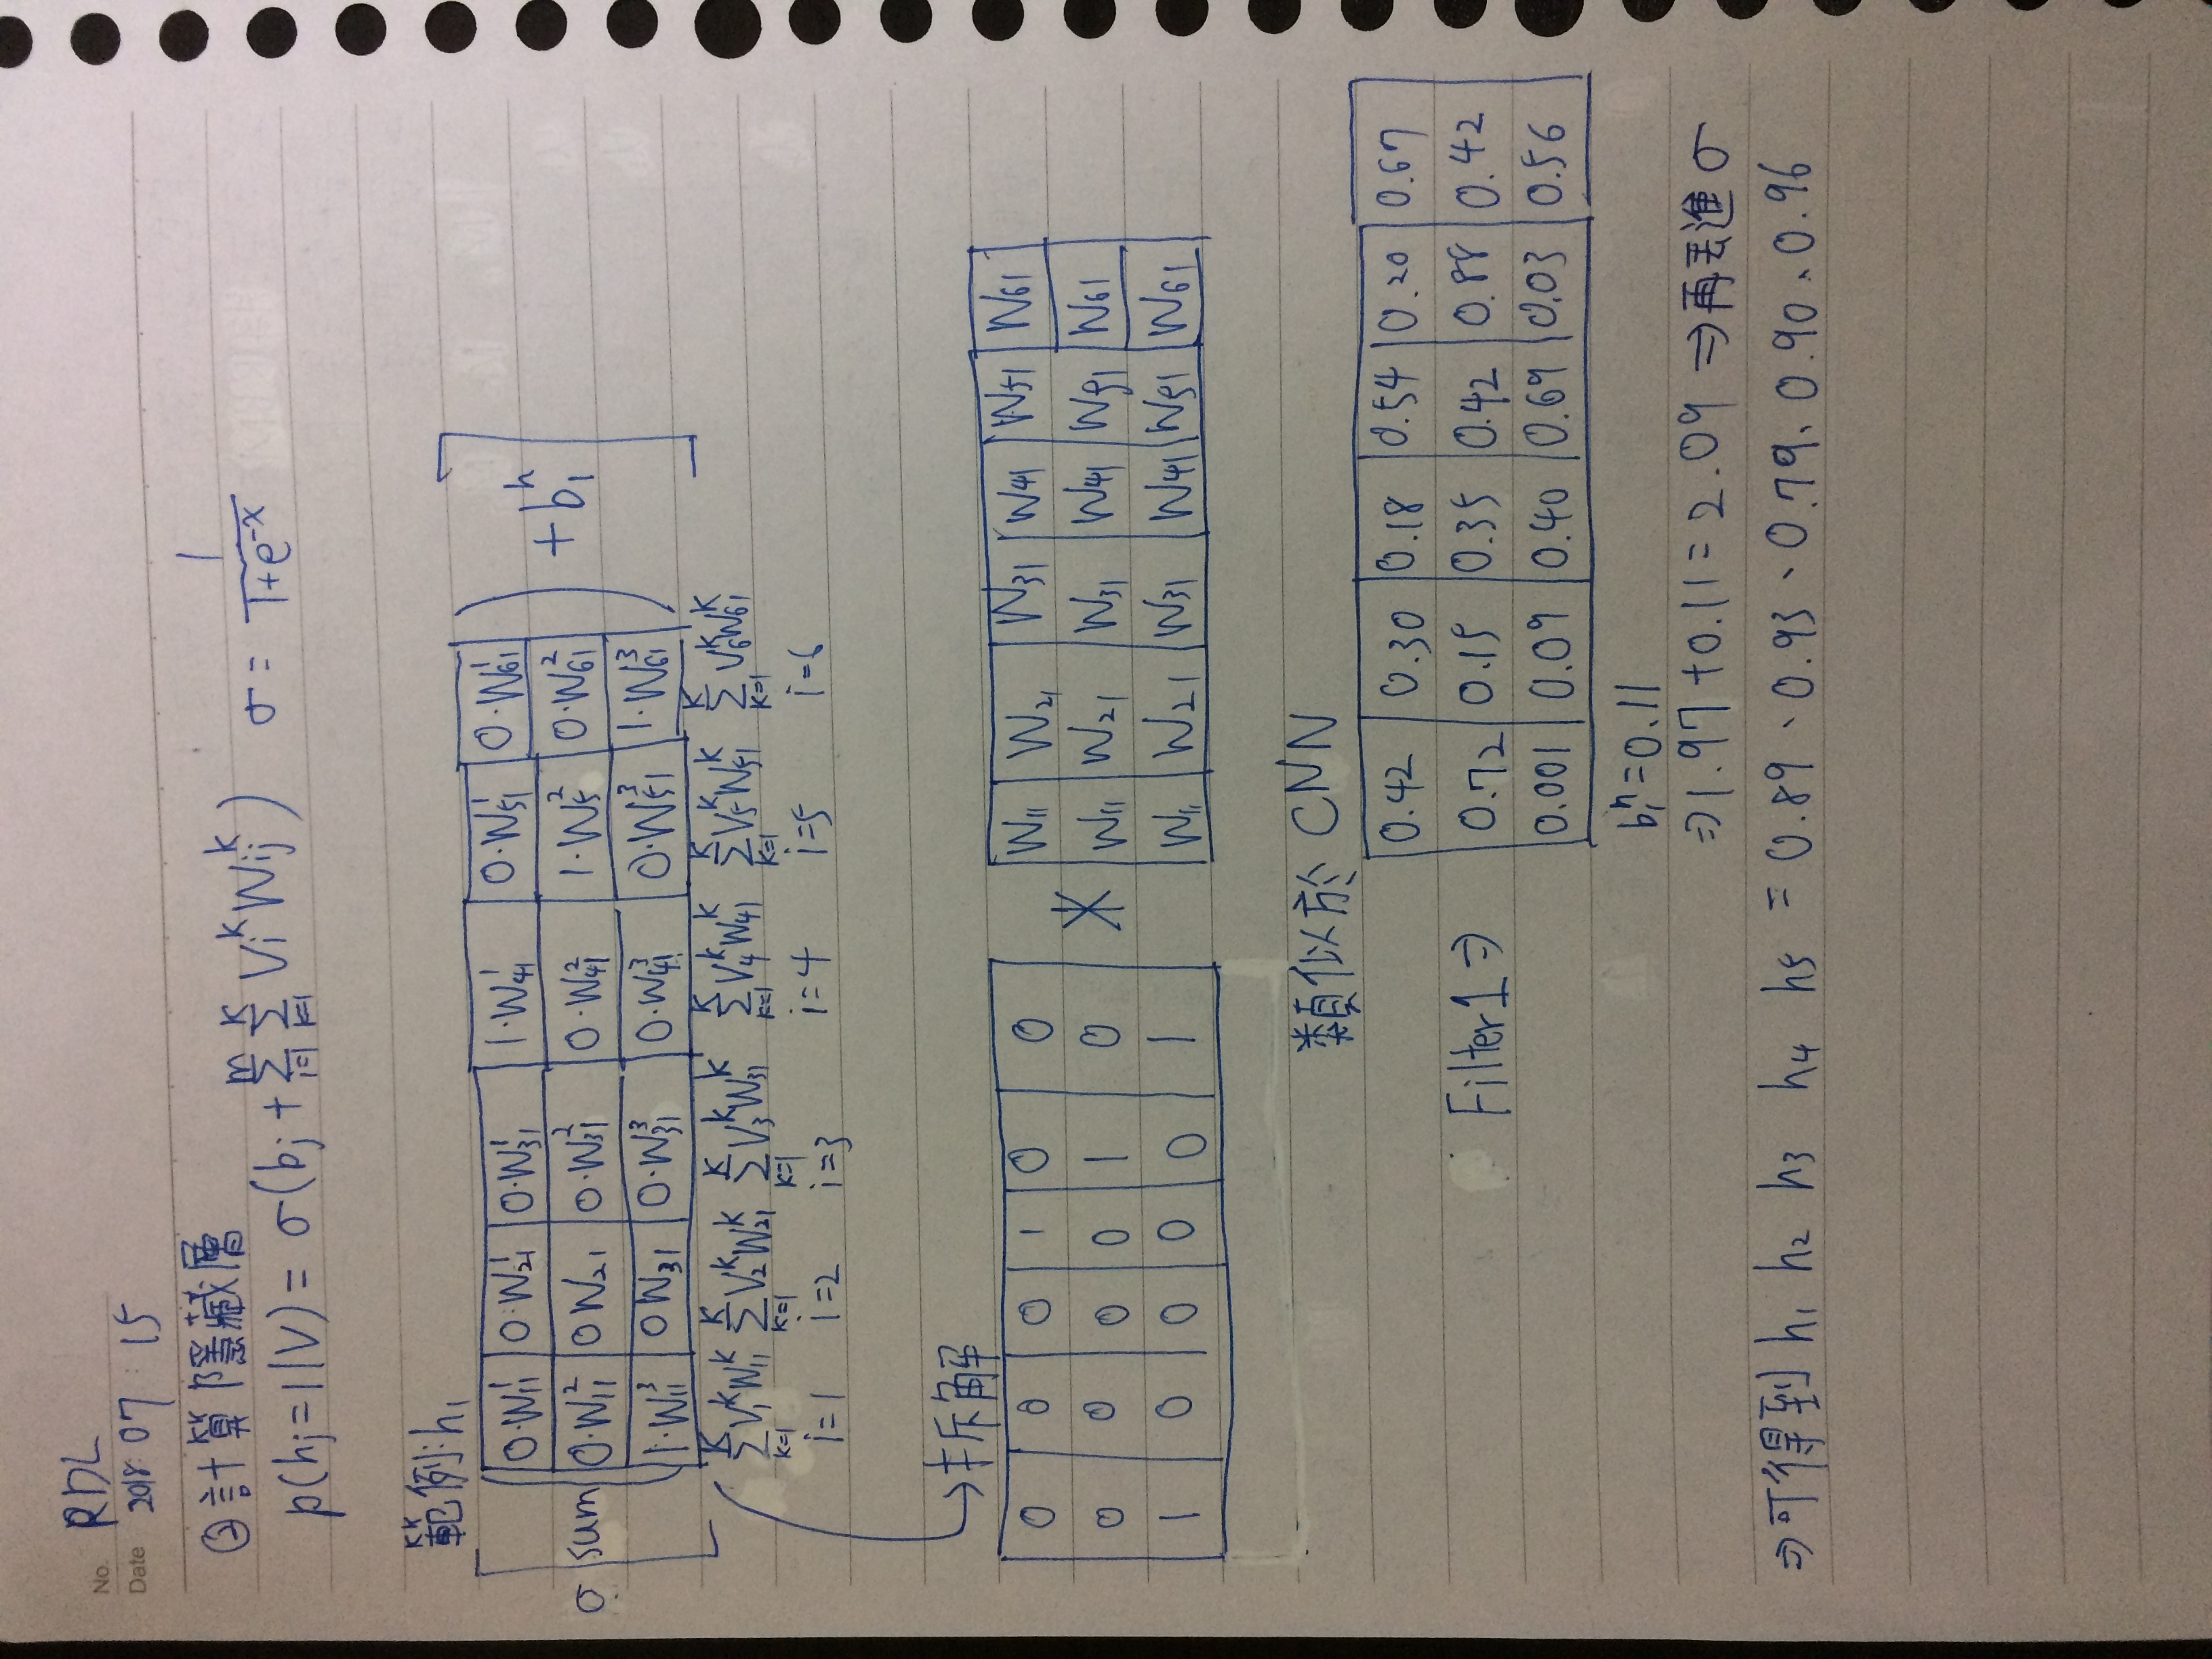 No. RDL
Date 2018. 07 : 15
②計算隱藏層
p(hj=1|V) = σ(bj + Σ_{i=1}^{m} Σ_{k=1}^{K} Vi^k Wij^k) σ = 1/(1+e^-x)
範例:h1
0·W11^1 0·W21^1 0·W31^1 1·W41^1 0·W51^1 0·W61^1
σ [sum( 0·W11^2 0W21 0·W31^2 0·W41^2 1·W5^2 0·W61^2 ) + b1^h]
1·W11^3 0W31 0·W31^3 0·W41^3 0·W51^3 1·W61^3
Σ_{k=1}^{K} V1^k W11^k Σ_{k=1}^{K} V2^k W21^k Σ_{k=1}^{K} V3^k W31^k Σ_{k=1}^{K} V4^k W41^k Σ_{k=1}^{K} V5^k W51^k Σ_{k=1}^{K} V6^k W61^k
i=1 i=2 i=3 i=4 i=5 i=6
→拆解
0 0 0 1 0 0 W11 W21 W31 W41 W51 W61
0 0 0 0 1 0 * W11 W21 W31 W41 W51 W61
1 0 0 0 0 1 W11 W21 W31 W41 W51 W61
類似於 CNN
0.42 0.30 0.18 0.54 0.20 0.67
Filter1 ⇒ 0.72 0.15 0.35 0.42 0.88 0.42
0.001 0.09 0.40 0.69 0.03 0.56
b1^h=0.11
⇒1.97+0.11=2.09 ⇒再丟進σ
⇒可得到 h1 h2 h3 h4 h5 = 0.89、0.93、0.79、0.90、0.96